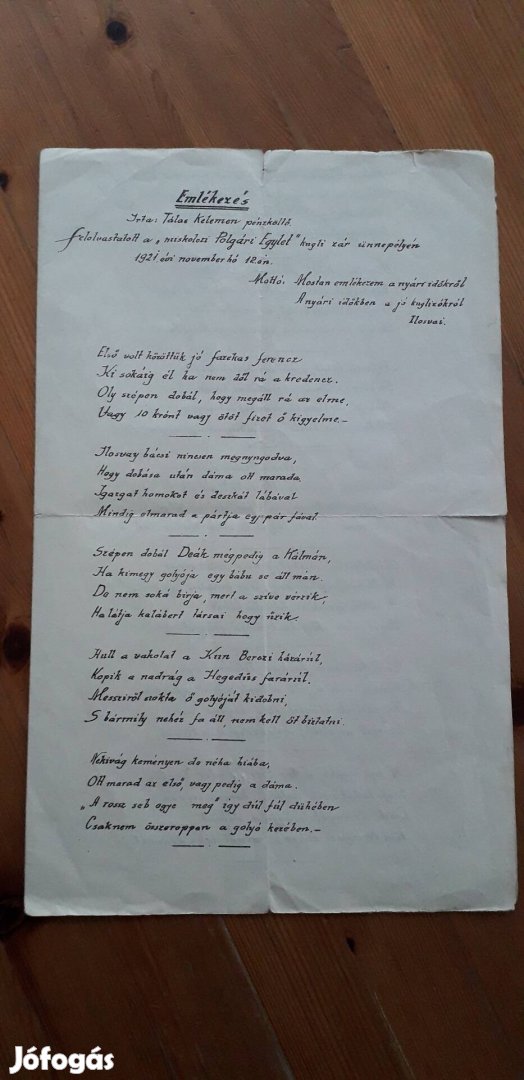 Emlékezés
Irta: Tálas Kelemen pénzköltő.
Felolvastatott a „miskolczi Polgári Egylet" kugli zár ünnepélyén
1921 évi november hó 12.én.
Mottó: Mostan emlékezem a nyári időkről
A nyári időkben a jó kuglizókról
Ilosvai.
Első volt közöttük jó fazekas ferencz
Ki sokáig él ha nem dől rá a kredencz.
Oly szépen dobál, hogy megáll rá az elme,
Vagy 10 krónt vagy ötöt fizet ő kigyelme.-
Ilosvay bácsi nincsen megnyugodva,
Hogy dobása után dáma ott marada.
Igazgat homokot és deszkát lábával
Mindig elmarad a pártja egy pár fával.
Szépen dobál Deák mégpedig a Kálmán,
Ha kimegy golyója egy bábu se áll mán.
De nem soká birja, mert a szive vérzik,
Ha látja kalábert társai hogy űzik.
Hull a vakolat a Kun Berczi házárúl,
Kopik a nadrág a Hegedüs farárúl.
Messziről szokta ő golyóját kidobni,
S bármily nehéz fa áll, nem kell őt biztatni.
Nekivág keményen de néha hiába,
Ott marad az első, vagy pedig a dáma.
„A rossz seb egye meg" igy dúl fúl dühében
Csaknem összeroppan a golyó kezében.-
Jófogás